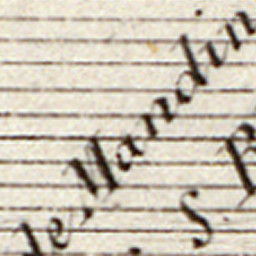 de Mandin
S. B